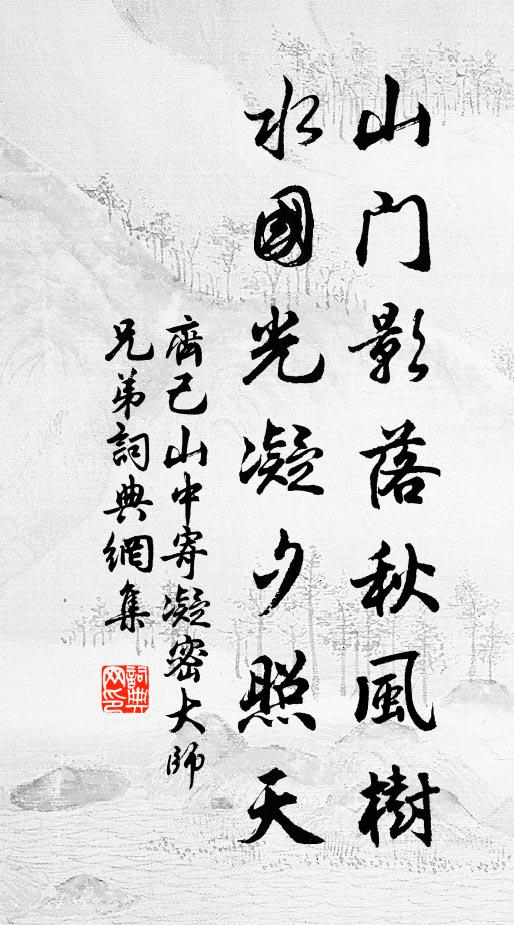 山門影落秋風樹
水國光凝夕照天
齊己山中寄凝密大師
兄弟詞典網集
詞典網印